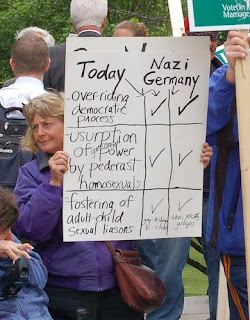 Vote On
Marriage
Today
Nazi
Germany
overriding
democratic
process
✓ ✓
-usurption
of power
by pederast
homosexuals
✓ ✓
-fostering of
adult-child
sexual liasons
✓ ✓
groups